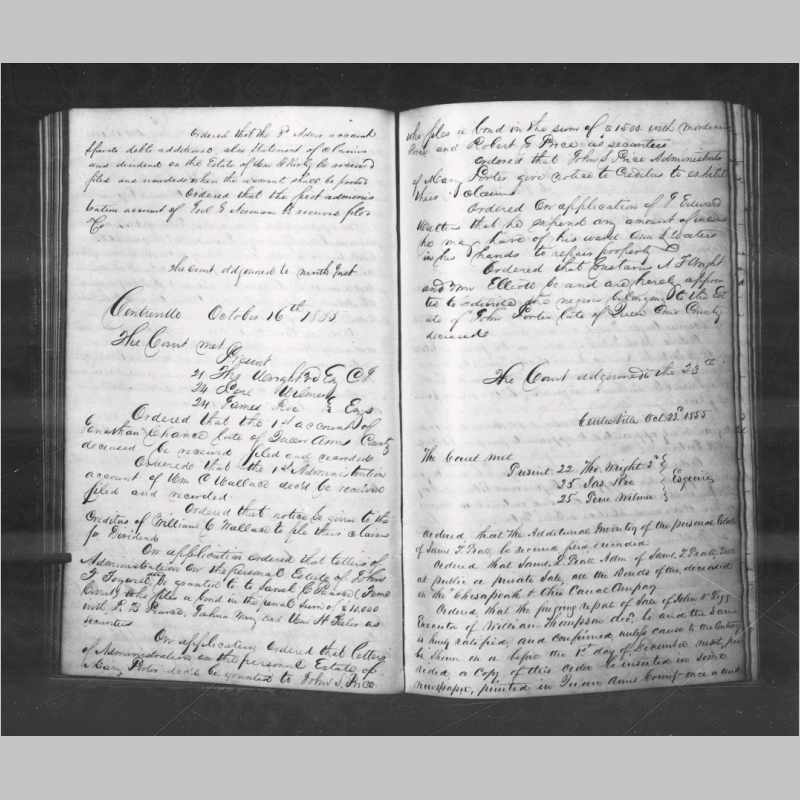 Ordered that the 1st Admn account
debts additional also Statement of claims
and dividend on the Estate of be received
filed and recorded when the warrant shall be
Ordered that the first adminis
tration account of Joel G Newman be received filed
&c
The Court adjourned to ninth Inst
Centreville October 16th 1855
The Court met
Present
21 Thos Wright 3rd Esq C J
24 Pere Wilmer
24 James Roe Esqs
Ordered that the 1st account of
Jonathan Chance late of Queen Anns County
deceased be received filed and recorded
Ordered that the 1st Administration
account of Wm C Wallace decd be received
filed and recorded
Ordered that notice be given to the
Creditors of William C Wallace to file their claims
for Dividend
On application ordered that letters of
Administration on the personal Estate of John
be granted to Sarah E
County who files a bond in the penal sum of $10,000
with and Wm H as
securities
On application ordered that letters
of Administration on the personal Estate of
Mary Porter decd be granted to John S. Price
who files a bond in the sum of $1500 with
Price and Robert E Price as securities
Ordered that John S Price Administrator
of Mary Porter give notice to Creditors to exhibit
their claims
Ordered On application of T Edward
Walters that he expend any amount of means
he may have of his ward Walters
in his hands to repair property
Ordered that Gustavus A T Wright
and Wm Elliott be and are hereby appoin
ted to divide the negroes belonging to the Est
ate of John Porter late of Queen Anns County
deceased
The Court adjourned to the 23rd
Centreville Oct 23d 1855
The Court met
Present 22 Tho. Wright 3d
25 Jas Roe Esquires
25 Pere Wilmer
Ordered, that the Additional Inventory of the personal Estate
of Saml. T. Pratt be received filed recorded
Ordered that Saml. T. Pratt Adm. of Saml. T. Pratt Sell
at public or private Sale, all the Bonds of the deceased
in the Chesapeake & Ohio Canal Company
Ordered that the foregoing report of Sale of John
Executor of William Thompson decd. be and the Same
is hereby ratified and confirmed, unless cause to the contrary
be Shown on or before the 1st day of December next, pro
vided a Copy of this Order be inserted in some
newspaper, printed in Queen Anns County once a week